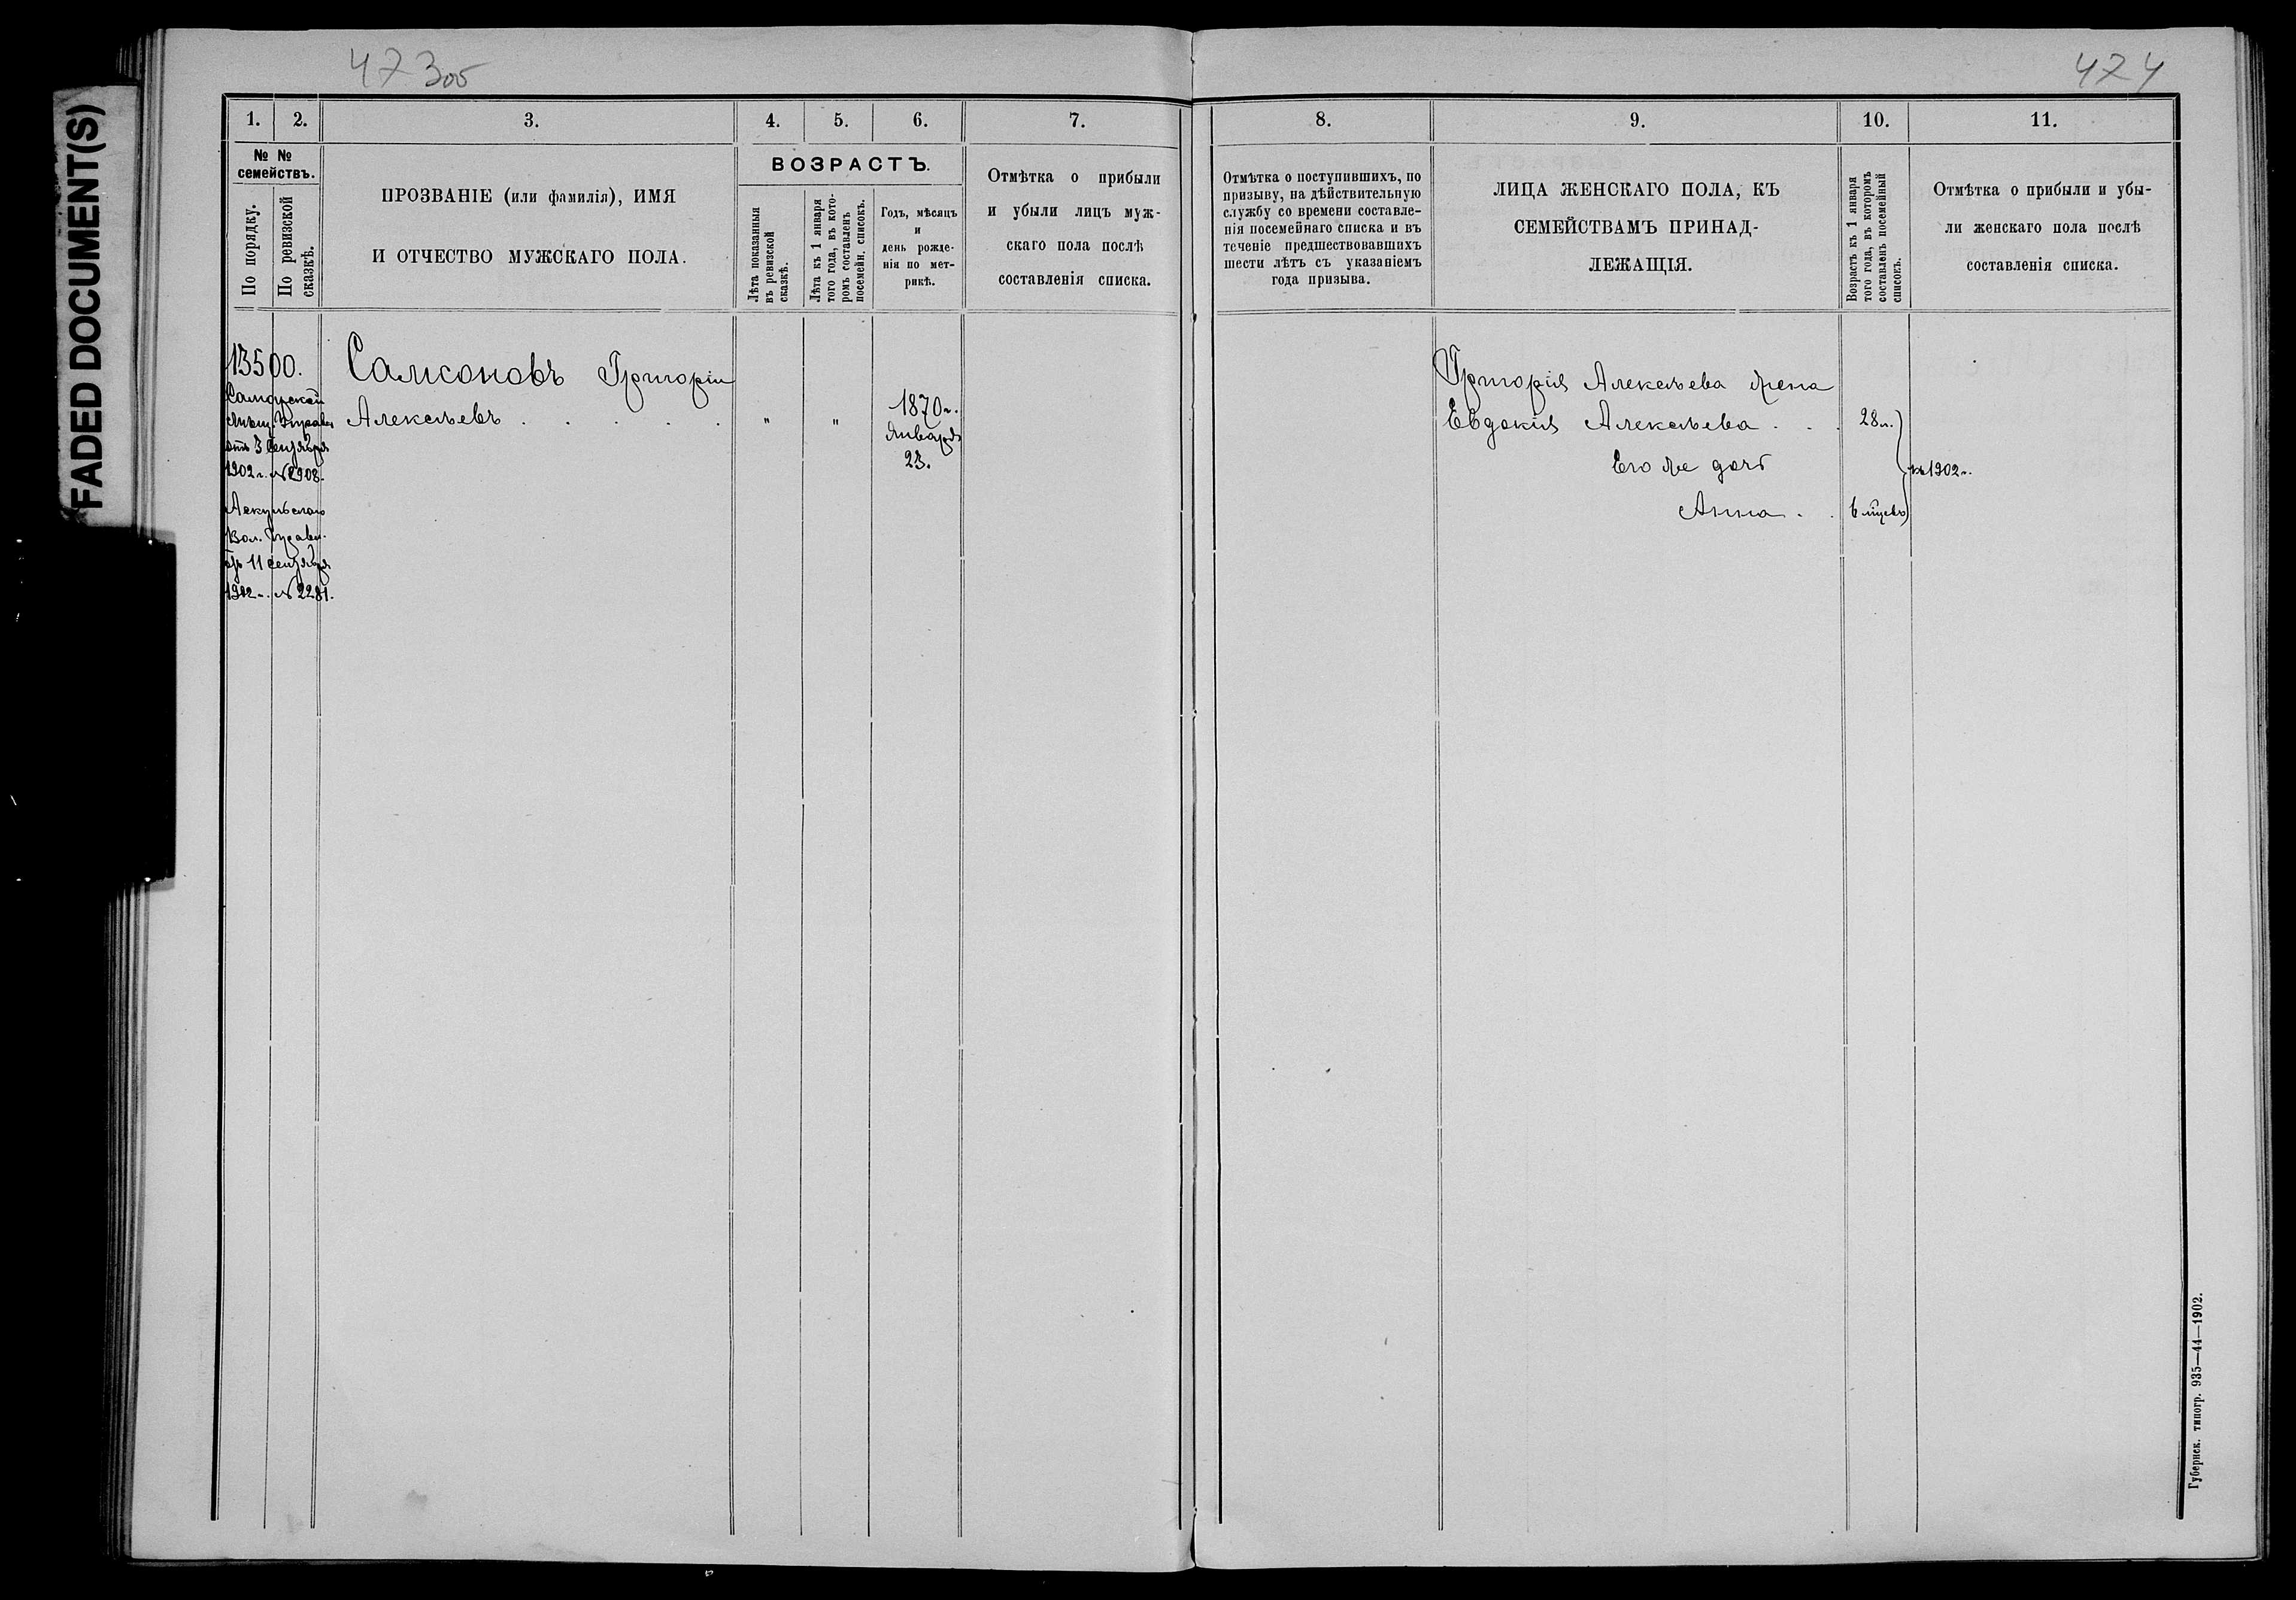 473об
474
FADED DOCUMENT(S)
1. 2. 3. 4. 5. 6. 7.
№ №
семействъ.
По порядку.
По ревизской
сказкѣ.
ПРОЗВАНІЕ (или фамилія), ИМЯ
И ОТЧЕСТВО МУЖСКАГО ПОЛА.
ВОЗРАСТЪ.
Лѣта показанныя
въ ревизской
сказкѣ.
Лѣта къ 1 января
того года, въ кото-
ромъ составленъ
посемейн. списокъ.
Годъ, мѣсяцъ
и
день рожде-
нія по мет-
рикѣ.
Отмѣтка о прибыли
и убыли лицъ муж-
скаго пола послѣ
составленія списка.
13500.
Самарской
мѣщ. Управы
отъ 3 Сентября
1902 г. №
Вол. Правл.
11 Сентября
1902 г. № 2281.
Самсоновъ Григорій
Алексѣевъ . . . . .
" "
1870 г.
Января
23.
8. 9. 10. 11.
Отмѣтка о поступившихъ, по
призыву, на дѣйствительную
службу со времени составле-
нія посемейнаго списка и въ
теченіе предшествовавшихъ
шести лѣтъ съ указаніемъ
года призыва.
ЛИЦА ЖЕНСКАГО ПОЛА, КЪ
СЕМЕЙСТВАМЪ ПРИНАД-
ЛЕЖАЩІЯ.
Возрастъ къ 1 января
того года, въ которомъ
составленъ посемейный
списокъ.
Отмѣтка о прибыли и убы-
ли женскаго пола послѣ
составленія списка.
Григорія Алексѣева жена
Евдокія Алексѣева . . . 28 л.
Его же дочь
къ 1902 г.
Анна . . 6 мѣсяц.
Губернск. типогр. 935—44—1902.